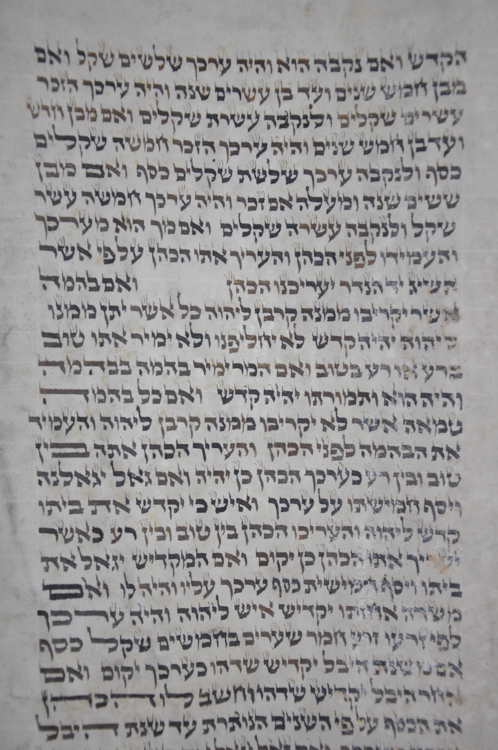 הקדש ואם נקבה הוא והיה ערכך שלשים שקל ואם
מבן חמש שנים ועד בן עשרים שנה והיה ערכך הזכר
עשרים שקלים ולנקבה עשרת שקלים ואם מבן חדש
ועד בן חמש שנים והיה ערכך הזכר חמשה שקלים
כסף ולנקבה ערכך שלשת שקלים כסף ואם מבן
ששים שנה ומעלה אם זכר והיה ערכך חמשה עשר
שקל ולנקבה עשרה שקלים ואם מך הוא מערכך
והעמידו לפני הכהן והעריך אתו הכהן על פי אשר
תשיג יד הנדר יעריכנו הכהן ואם בהמה
אשר יקריבו ממנה קרבן ליהוה כל אשר יתן ממנו
ליהוה יהיה קדש לא יחליפנו ולא ימיר אתו טוב
ברע או רע בטוב ואם המר ימיר בהמה בבהמה
והיה הוא ותמורתו יהיה קדש ואם כל בהמה
טמאה אשר לא יקריבו ממנה קרבן ליהוה והעמיד
את הבהמה לפני הכהן והעריך הכהן אתה בין
טוב ובין רע כערכך הכהן כן יהיה ואם גאל יגאלנה
ויסף חמישתו על ערכך ואיש כי יקדש את ביתו
קדש ליהוה והעריכו הכהן בין טוב ובין רע כאשר
יעריך אתו הכהן כן יקום ואם המקדיש יגאל את
ביתו ויסף חמישית כסף ערכך עליו והיה לו ואם
משדה אחזתו יקדיש איש ליהוה והיה ערכך
לפי זרעו זרע חמר שערים בחמשים שקל כסף
אם משנת היבל יקדיש שדהו כערכך יקום ואם
אחר היבל יקדיש שדהו וחשב לו הכהן
את הכסף על פי השנים הנותרת עד שנת היבל